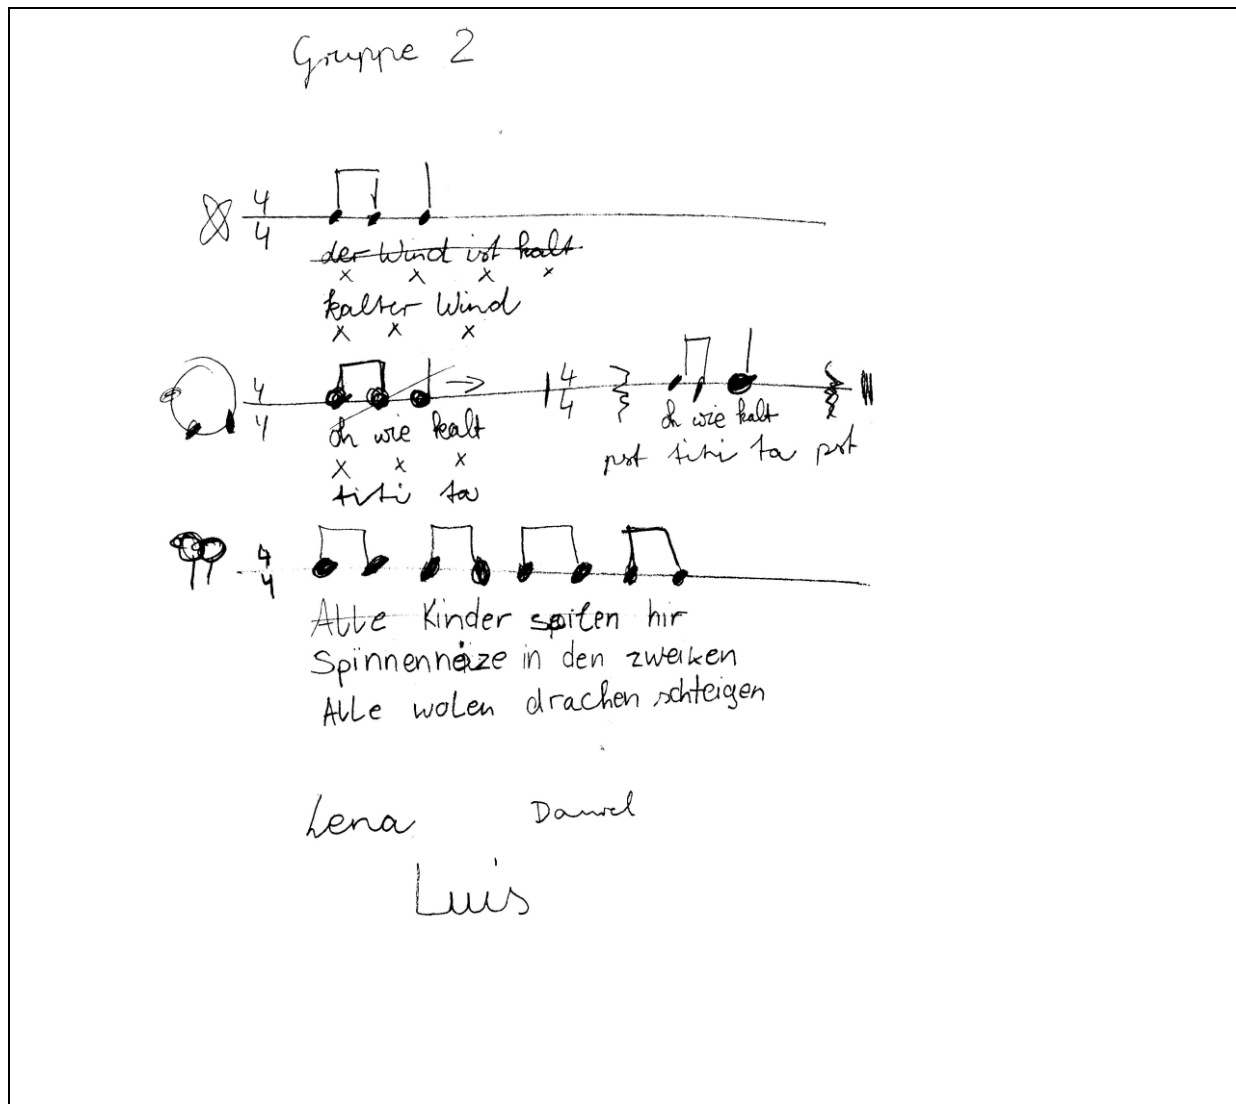 Gruppe 2
4
4
der Wind ist kalt
x x x x
kalter Wind
x x x
4
4
4
4
oh wie kalt
x x x
titi ta
oh wie kalt
pst titi ta pst
4
4
Alle Kinder speilen hir
Spinnenneze in den zweiken
Alle wolen drachen schteigen
Lena Daniel
Luis